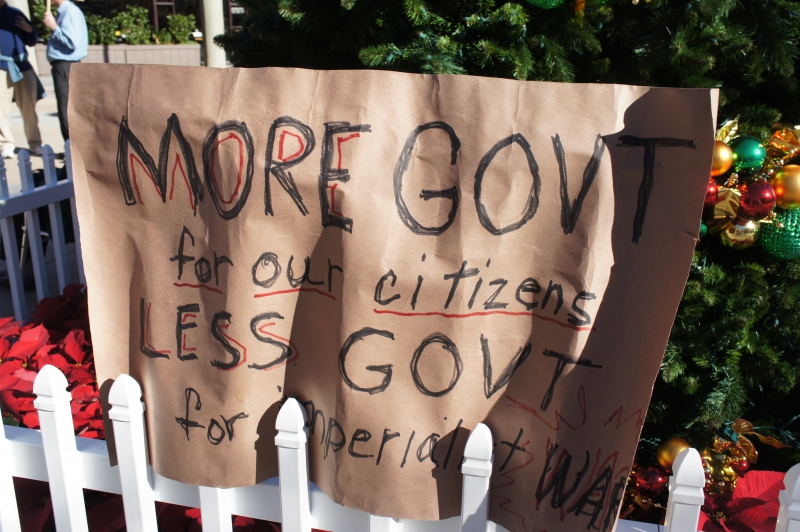 MORE GOVT
for our citizens
LESS GOVT
for imperialist WAR